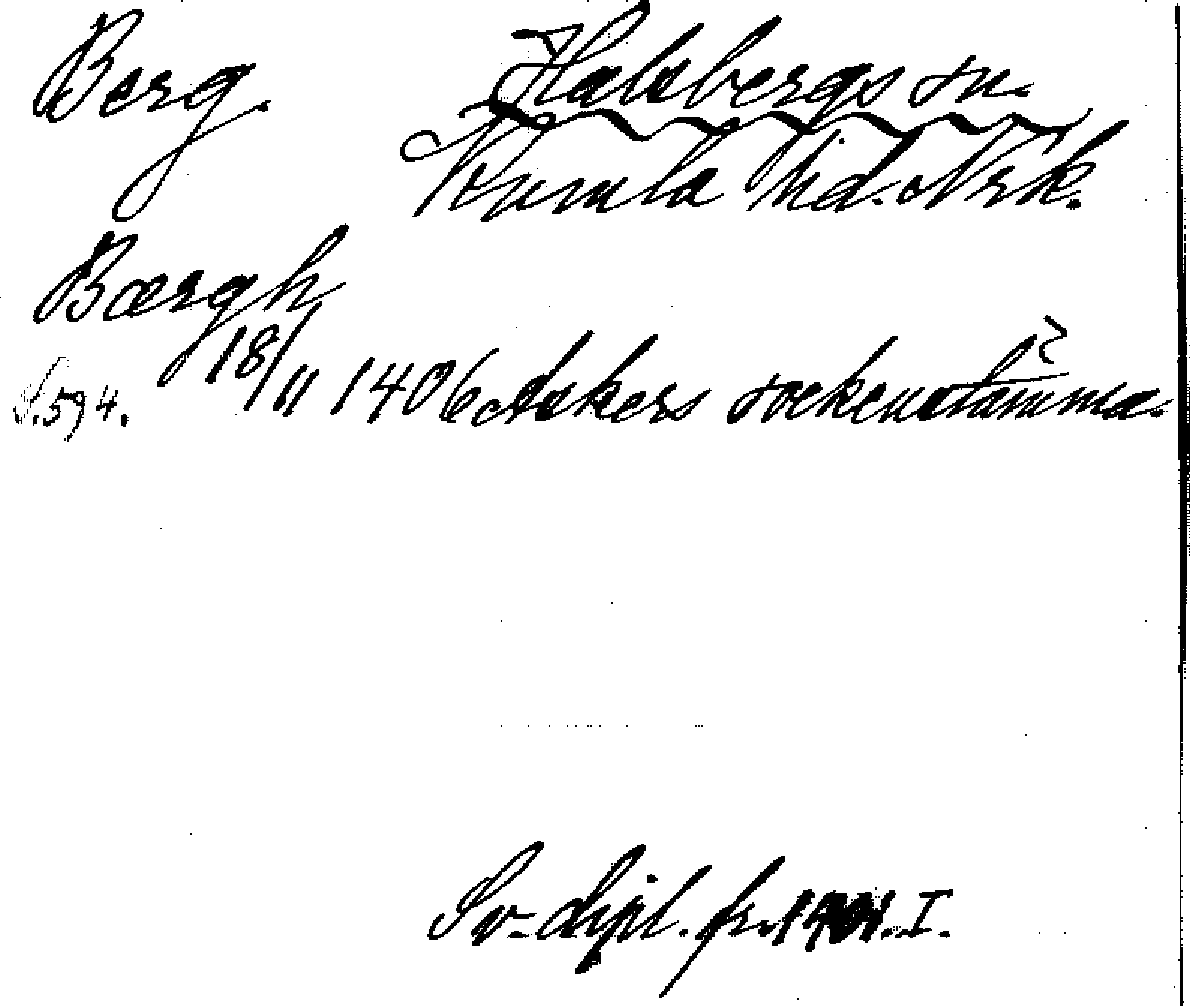 Berg. Halsbergs sn.
Kumla hd. Nrk.
Bærgh
18/11 1406 Askers sockenstämma?
S. 594.
Sv. dipl. fr. 1401. I.